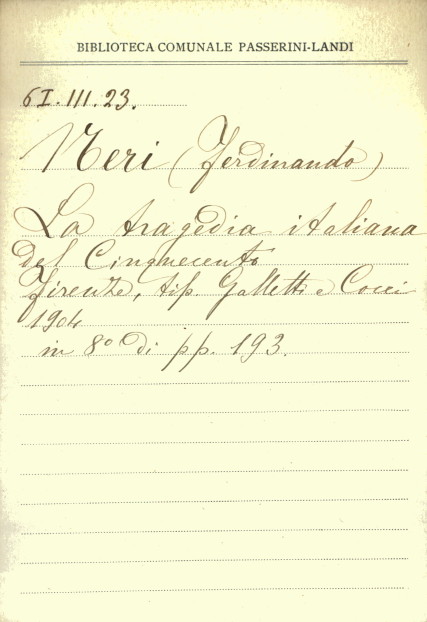 BIBLIOTECA COMUNALE PASSERINI-LANDI
6I.III.23.
Neri (Ferdinando)
La tragedia italiana
del Cinquecento
Firenze, tip. Galletti e Cocci
1904
in 8° di pp. 193.